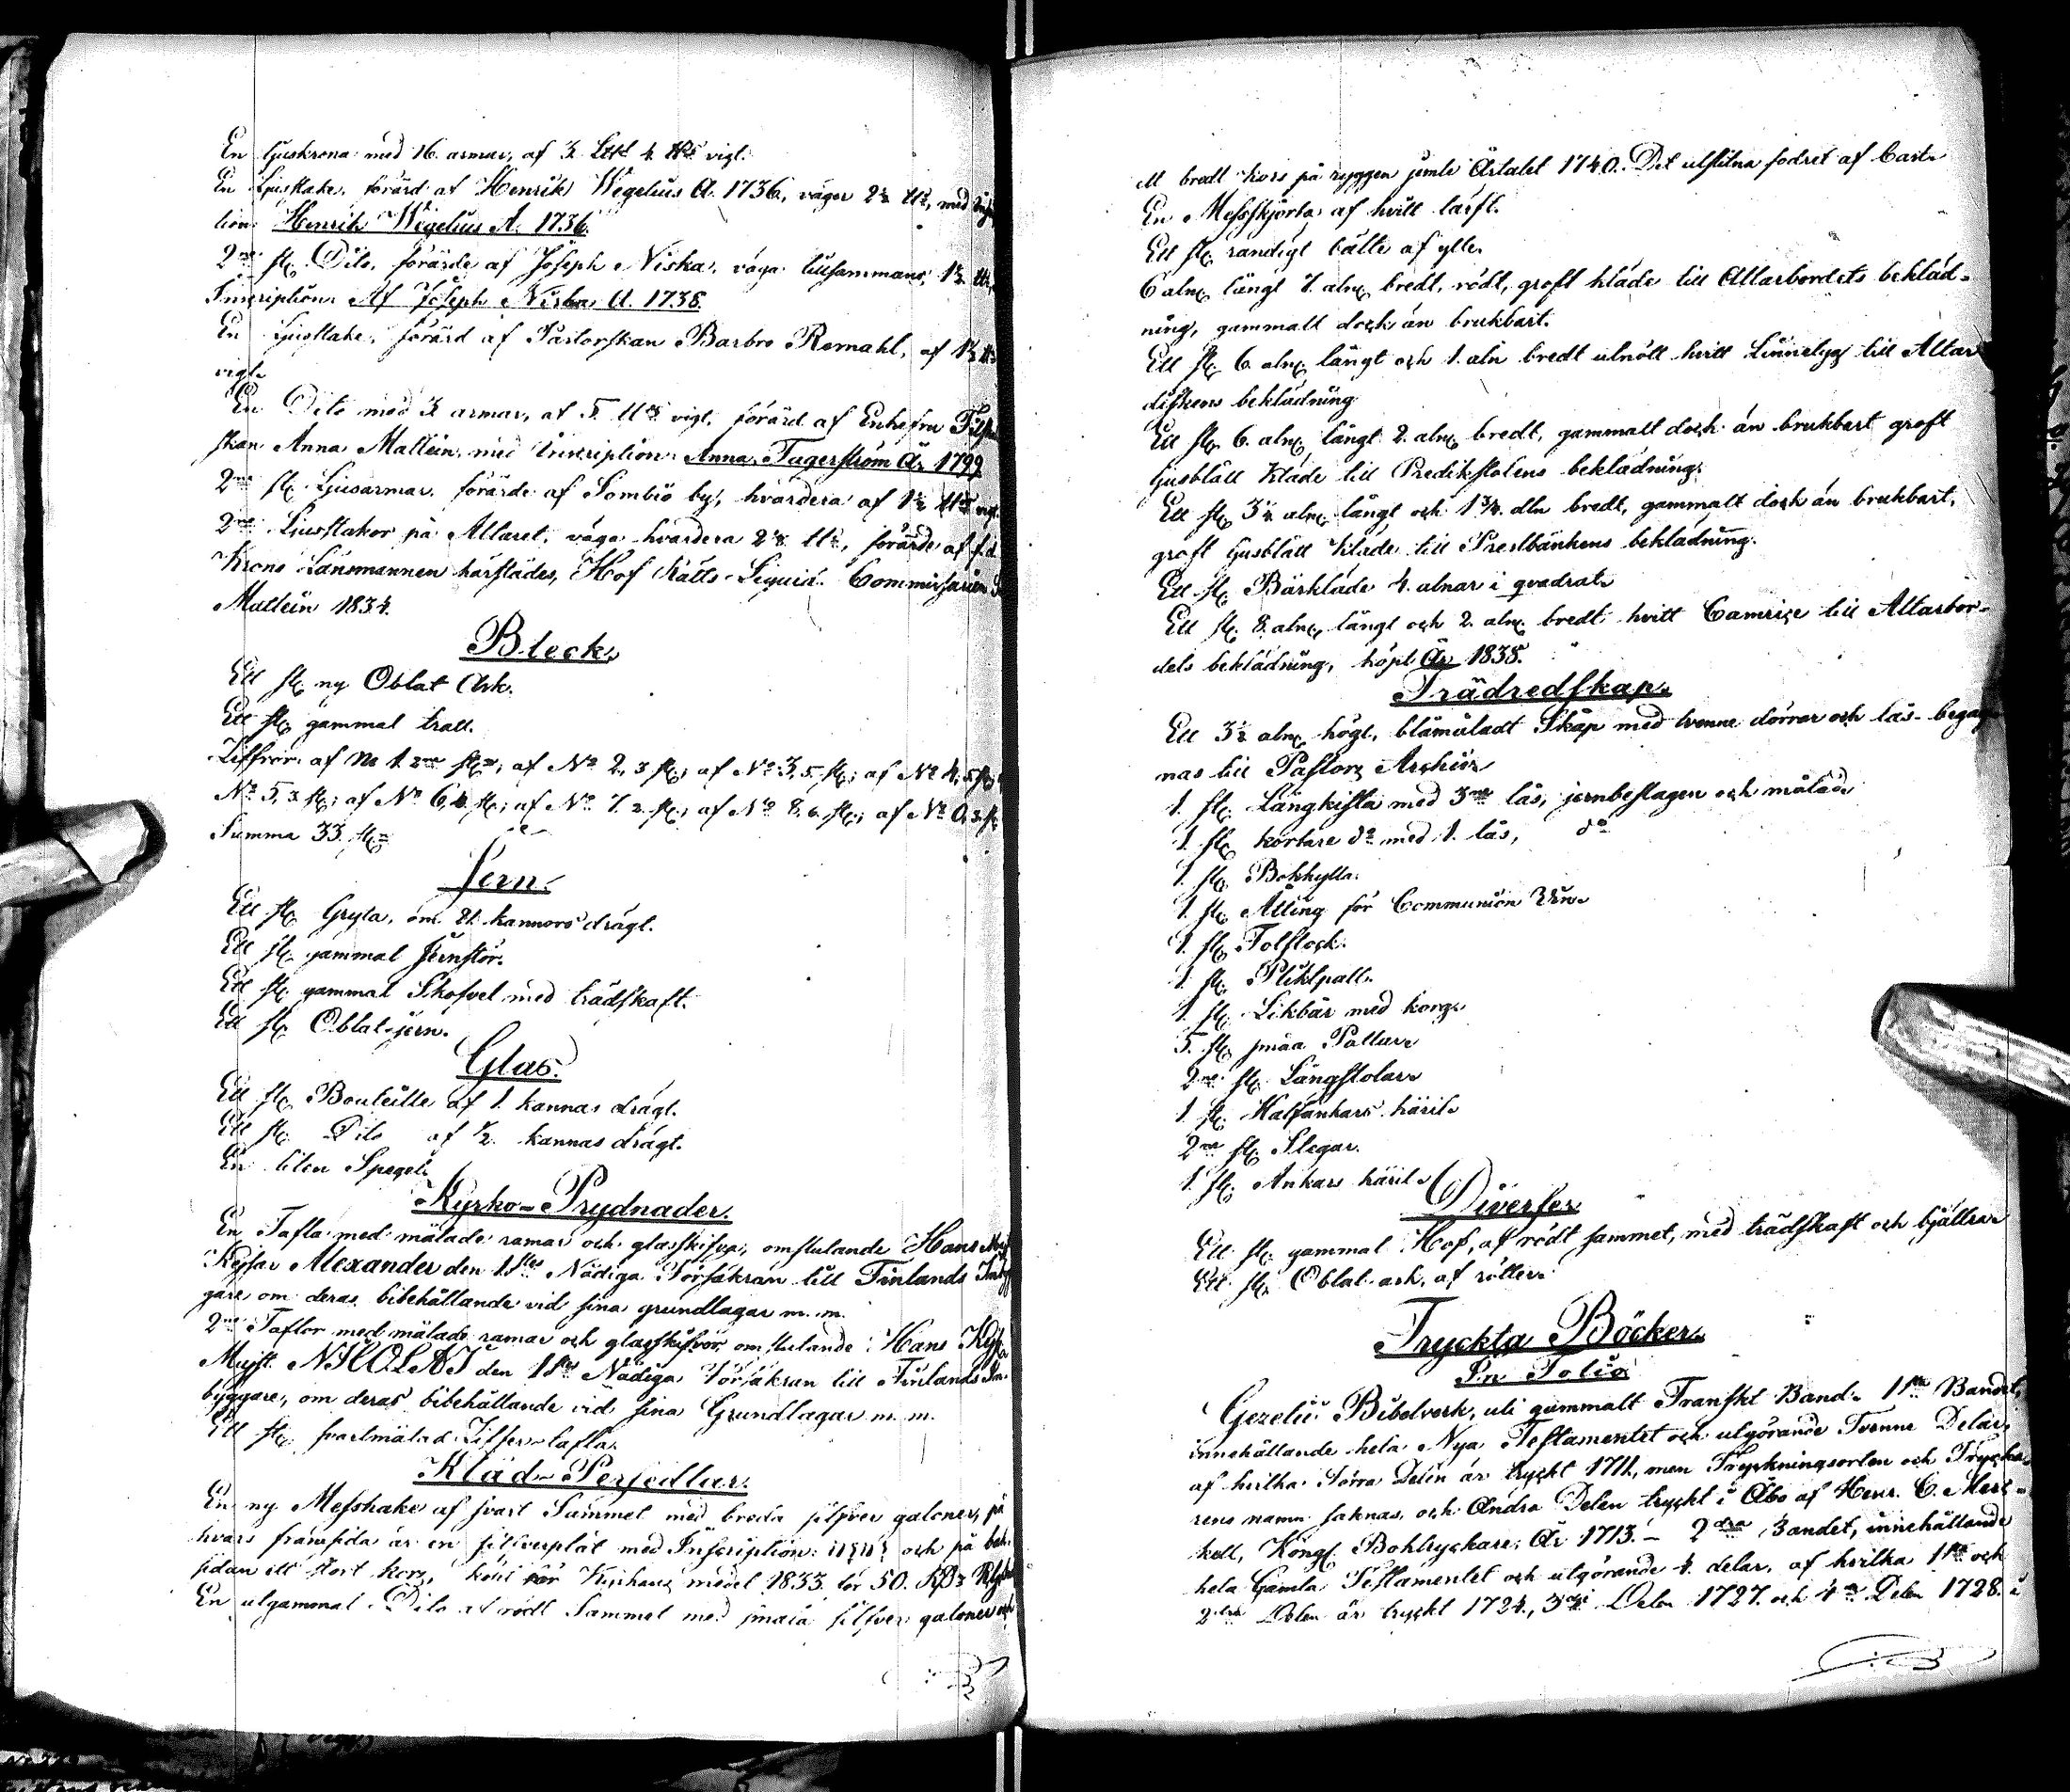 En ljuskrona med 16 armar, af 3 L℔ 4 ℔s vigt.
En Ljustake, förärd af Henrik Wegelius A. 1736, väger 2½ ℔, med
tion: Henrik Wegelius A. 1736.
2ne st. Dito, förärde af Joseph Niska, väga tillsammans 1½ ℔,
Inscription: Af Joseph Niska A. 1738.
En Ljustake, förärd af Pastorskan Barbro Remahl, af 1½ ℔s
vigt.
En Dito med 3 armar, af 5 ℔s vigt, förärd af Enkefru
skan Anna Mallein, med Inscription: Anna Fagerström År 1799
2ne st. Ljusarmar, förärde af Sombio by, hvardera af 1½ ℔s vigt.
2ne Ljusstakor på Altaret, väga hvardera 2½ ℔s, förärde af f.d.
Krono Länsmannen härstädes, Hof Rätts Commissarien
Mallein 1834.
Bleck.
Ett st. ny Oblat Ask.
Ett st. gammal tratt.
Ziffror: af No 1. 2ne st.; af No 2, 3 st.; af No 3, 5 st.; af No 4, 5 st.;
No 5, 3 st.; af No 6, 4 st.; af No 7. 2 st.; af No 8, 6 st.; af No 0, 3 st.
Summa 33 st.
Jern.
Ett st. Gryta, om 21 kannors drägt.
Ett st. gammal Jernstör.
Ett st. gammal Skofvel med trädskaft.
Ett st. Oblat-jern.
Glas.
Ett st. Bouteille af 1. kannas drägt.
Ett st. Dito af ½ kannas drägt.
En liten Spegel.
Kyrko-Prydnader.
En Tafla med målade ramar och glasskifva, omslutande Hans Maj
Kejsar Alexander den 1stes Nådiga Försäkran till Finlands Inbyg
gare om deras bibehållande vid sina grundlagar m. m.
2ne Taflor med målade ramar och glasskifvor, omslutande Hans Kejs
Majst. NICOLAI den 1stes Nådiga Försäkran till Finlands In-
byggare, om deras bibehållande vid sina Grundlagar m. m.
Ett st. svartmålad Ziffer-tafla.
Kläd-Persedlar.
En ny Messhake af svart Sammet med breda silfver galoner, på
hvars framsida är en silfverplåt med Inscription: och på bak-
sidan ett stort kors, köpt från Kejshans medel 1833 för 50. Rub.
En utgammal Dito af rödt Sammet med smala silfver galoner och
ett bredt kors på ryggen jemte Årtalet 1740. Det utslitna fodret af Cart.
En Messskjorta af hvitt larft.
Ett st. randigt bälte af ylle.
6 aln. långt 7. aln. bredt, rödt, groft kläde till Altarbordets bekläd-
ning, gammalt dock än brukbart.
Ett st. 6. aln. långt och 1. aln bredt utnött hvitt Linnetyg till Altar
diskens beklädning
Ett st. 6. aln. långt 2. aln. bredt, gammalt dock än brukbart groft
ljusblått Kläde till Predikstolens beklädning.
Ett st. 3½ aln. långt och 1¾ aln bredt, gammalt dock än brukbart,
groft ljusblått Kläde till Prestbänkens beklädning.
Ett st. Bårkläde 4. alnar i qvadrat.
Ett st. 8. aln. långt och 2. aln. bredt hvitt Camrice till Altarbor-
dets beklädning, köpt År 1838.
Trädredskap.
Ett 3½ aln. högt, blåmåladt Skåp med tvenne dörrar och lås. begag-
nas till Pastors Archiv.
1. st. Långkista med 3ne lås, jernbeslagen och målad.
1. st. kortare do med 1. lås, do
1. st. Bokhylla.
1. st. Atting för Communion Vin.
1. st. Tolfstock.
1. st. Pliktpall.
1. st. Likbår med korg.
5. st. smäa Pallar.
2ne st. Långstolar.
1. st. Halfankars käril.
2ne st. Stegar.
1. st. Ankars käril.
Diverser
Ett st. gammal Hof, af rödt sammet, med trädskaft och bjällror
Ett st. Oblat-ask, af rötter.
Tryckta Böcker.
In Folio
Gezelii Bibelverk, uti gammalt Franskt Band. 1sta Bandet,
innehållande hela Nya Testamentet och utgörande Tvenne Delar,
af hvilka Förra Delen är tryckt 1711, men Tryckningsorten och Trycka-
rens namn saknas, och Andra Delen tryckt i Åbo af Henr. C. Merc-
kell, Kongl. Boktryckare, År 1713. - 2dra Bandet, innehållande
hela Gamla Testamentet och utgörande 4. delar, af hvilka 1sta och
2dra Delen är tryckt 1724, 3dje Delen 1727. och 4de Delen 1728. i